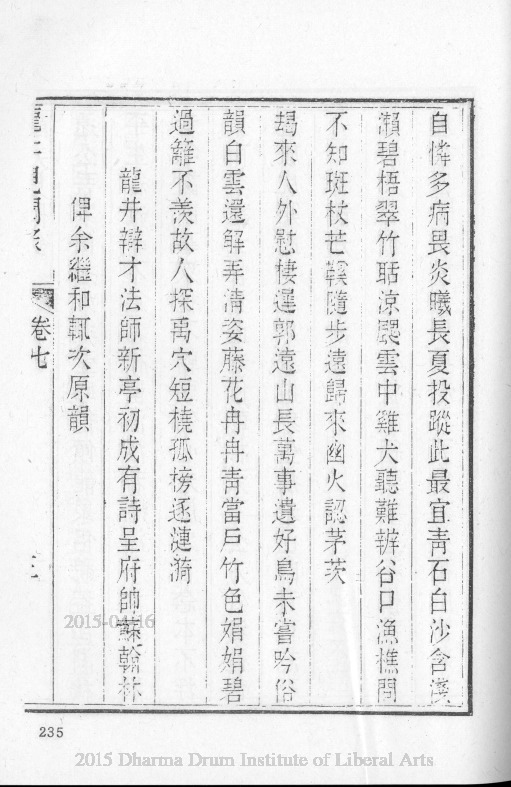 自憐多病畏炎曦長夏投蹤此最宜靑石白沙含淺
瀨碧梧翠竹聒涼颸雲中雞犬聽難辨谷口漁樵問
不知斑杖芒鞵隨步遠歸來幽火認茅茨
朅來人外慰棲遲郭遠山長萬事遺好鳥未嘗吟俗
韻白雲還解弄淸姿藤花冉冉靑當戶竹色娟娟碧
過籬不羨故人探禹穴短橈孤榜逐漣漪
龍井辯才法師新亭初成有詩呈府帥蘇翰林
俾余繼和輒次原韻
龍井見聞錄
卷七
235
2015-04-16
2015 Dharma Drum Institute of Liberal Arts